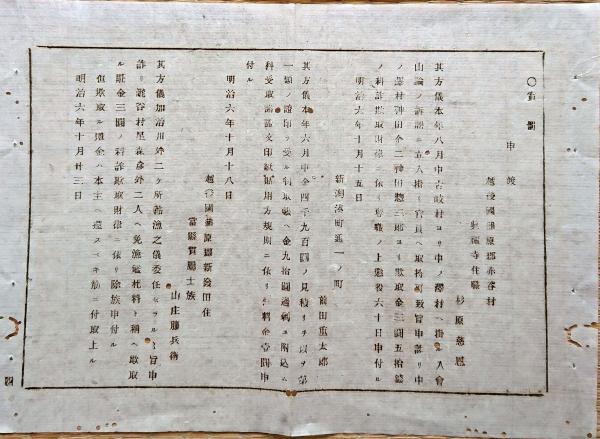 ○賞罰
申渡
越後國蒲原郡赤谷村
住職
杉原慈恩
其方儀本年八月中古岐村ヨリ中ノ澤村ヘ掛ル入會
山論ノ訴訟ニ立入掛リ官員ヘ取持町致旨申詐リ中
ノ澤村神田今二神田惣三郎ヨリ欺取金三圓五拾錢
ノ科詐欺取財律ニ依リ奪職ノ上懲役六十日申付ル
明治六年十月十五日
新潟湊町通一ノ町
前田重太郎
其方儀本年六月中金四千九百圓ノ見積リヲ以
一類ノ證印ヲ受ル利取金九拾圓過剩
科受取諸證文印紙貼用方規則ニ依リ料金壹圓申
付ル
明治六年十月十八日
越後國蒲原郡新發田住
當縣貫屬士族
山庄藤兵衛
其方儀加治川外二ケ所鮭漁之儀委任セラルヽ旨申
詐リ瀧谷村星森彦外二人ヘ免漁鑑札料ト稱ヘ欺取
ル贓金三圓ノ科詐欺取財律ニ依リ除族申付ル
但欺取ル贓金ハ本主ヘ還スヘキ筋ニ付取上ル
明治六年十月廿三日